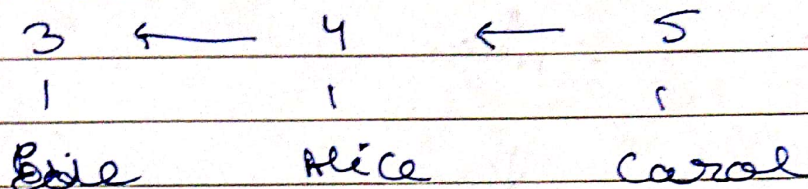 3 ← 4 ← 5
1 1 1
Alice Carol